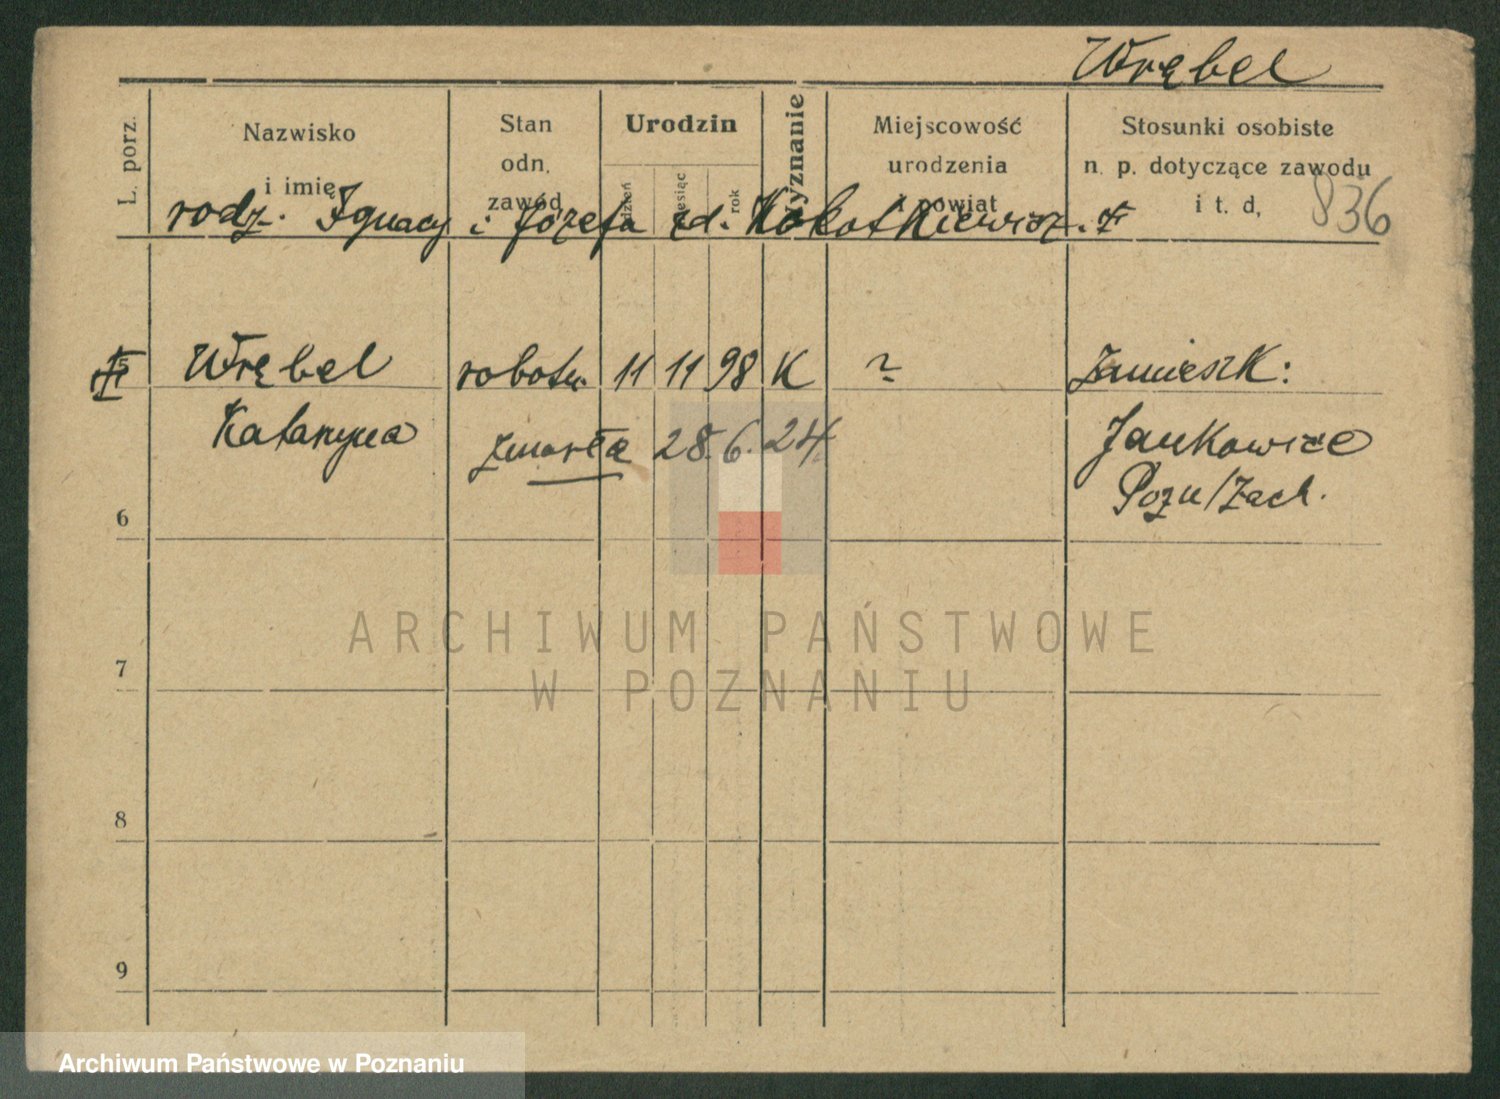 Wrębel
L. porz.
Nazwisko
i imię
Stan
odn.
zawód
Urodzin
dzień
miesiąc
rok
Wyznanie
Miejscowość
urodzenia
powiat
Stosunki osobiste
n. p. dotyczące zawodu
i t. d,
836
rodz. Ignacy i Józefa zd.
Wrębel robotn. 11 11 98 K ? Zamieszk:
Katarzyna zmarła 28.6.24. Jankowice
Pozn/Zach.
6
7
8
9
ARCHIWUM PAŃSTWOWE
W POZNANIU
Archiwum Państwowe w Poznaniu